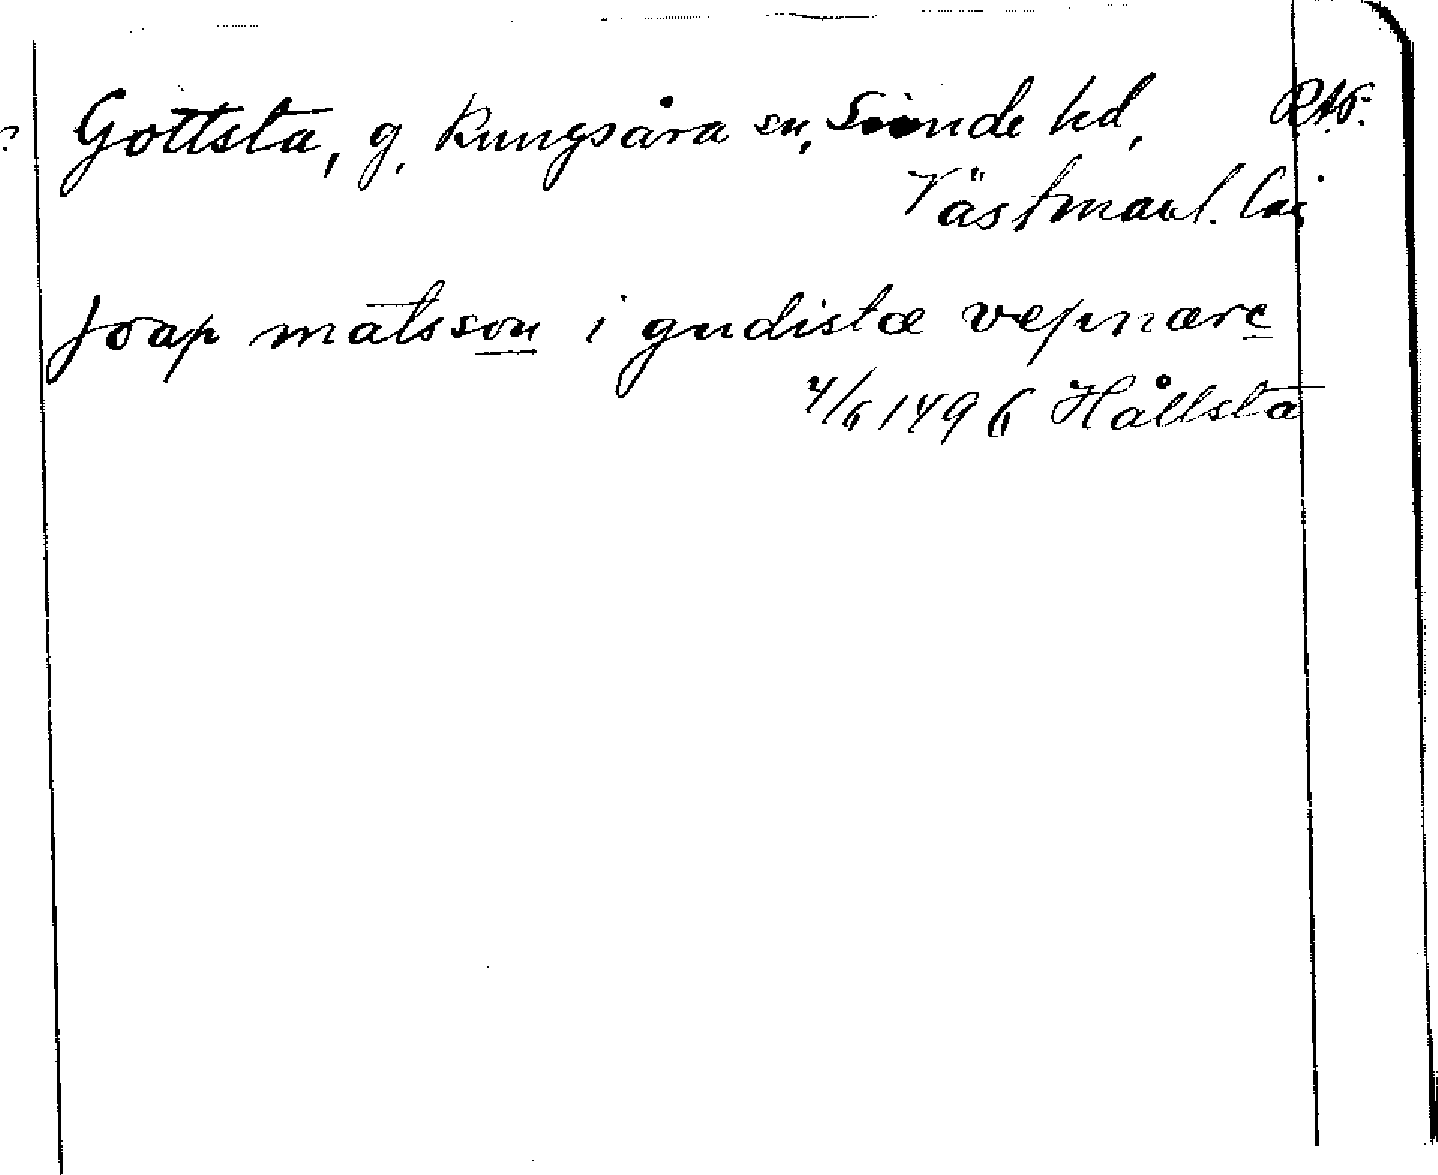 Gottsta, g. Kungsåra sn, Siende hd, RAP.
Västmanl. län
Joap matsson i gudistæ vepnare
4/6 1496 Hållsta